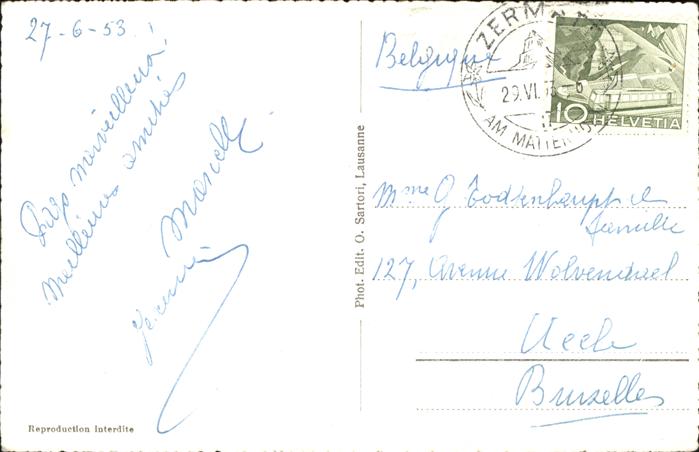 27-6-53.
Pays merveilleux!
Meilleures amitiés
Marcelle
Belgique
ZERMATT
29.VI.53-6
AM MATTERHORN
10 HELVETIA
Mme G Todtenhaupt et
famille
127, Avenue Wolvendael
Uccle
Bruxelles
Phot. Edit. O. Sartori, Lausanne
Reproduction interdite